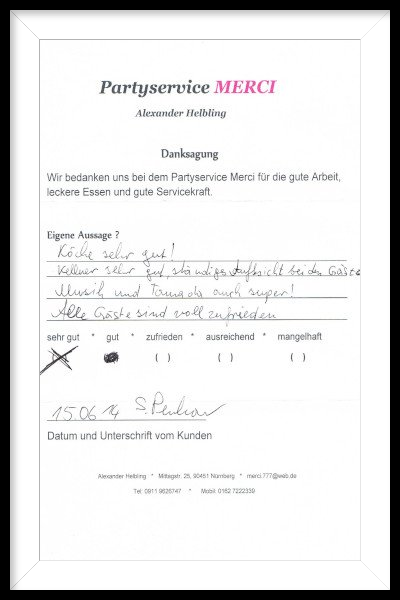 Partyservice MERCI
Alexander Helbling
Danksagung
Wir bedanken uns bei dem Partyservice Merci für die gute Arbeit,
leckere Essen und gute Servicekraft.
Eigene Aussage ?
Köche sehr gut!
Kellner sehr gut, ständiges Aufsicht bei den Gäste
Musik und Tamada auch super!
Alle Gäste sind voll zufrieden
sehr gut * gut * zufrieden * ausreichend * mangelhaft
( ) ( ) ( )
15.06 14 S.
Datum und Unterschrift vom Kunden
Alexander Helbling * Mittagstr, 25, 90451 Nürnberg * merci.777@web.de
Tel: 0911 9626747 * Mobil: 0162 7222339